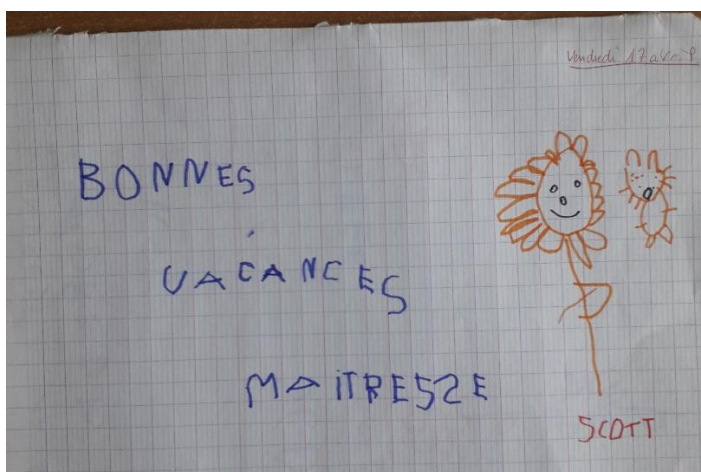 Vendredi 17 avril
BONNES
VACANCES
MAITRESSE
SCOTT